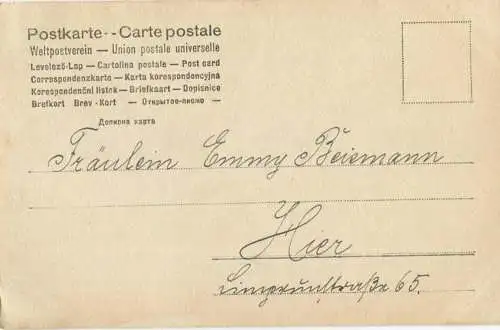 Postkarte -- Carte postale
Weltpostverein — Union postale universelle
Levelező-Lap — Cartolina postale — Post card
Correspondenzkarte — Karta korespondencyjna
Korespondenční listek — Briefkaart — Dopisnice
Brefkort Brev-Kort — Открытое-письмо —
Дописна карта
Fräulein Emmy Beismann
Hier
65.